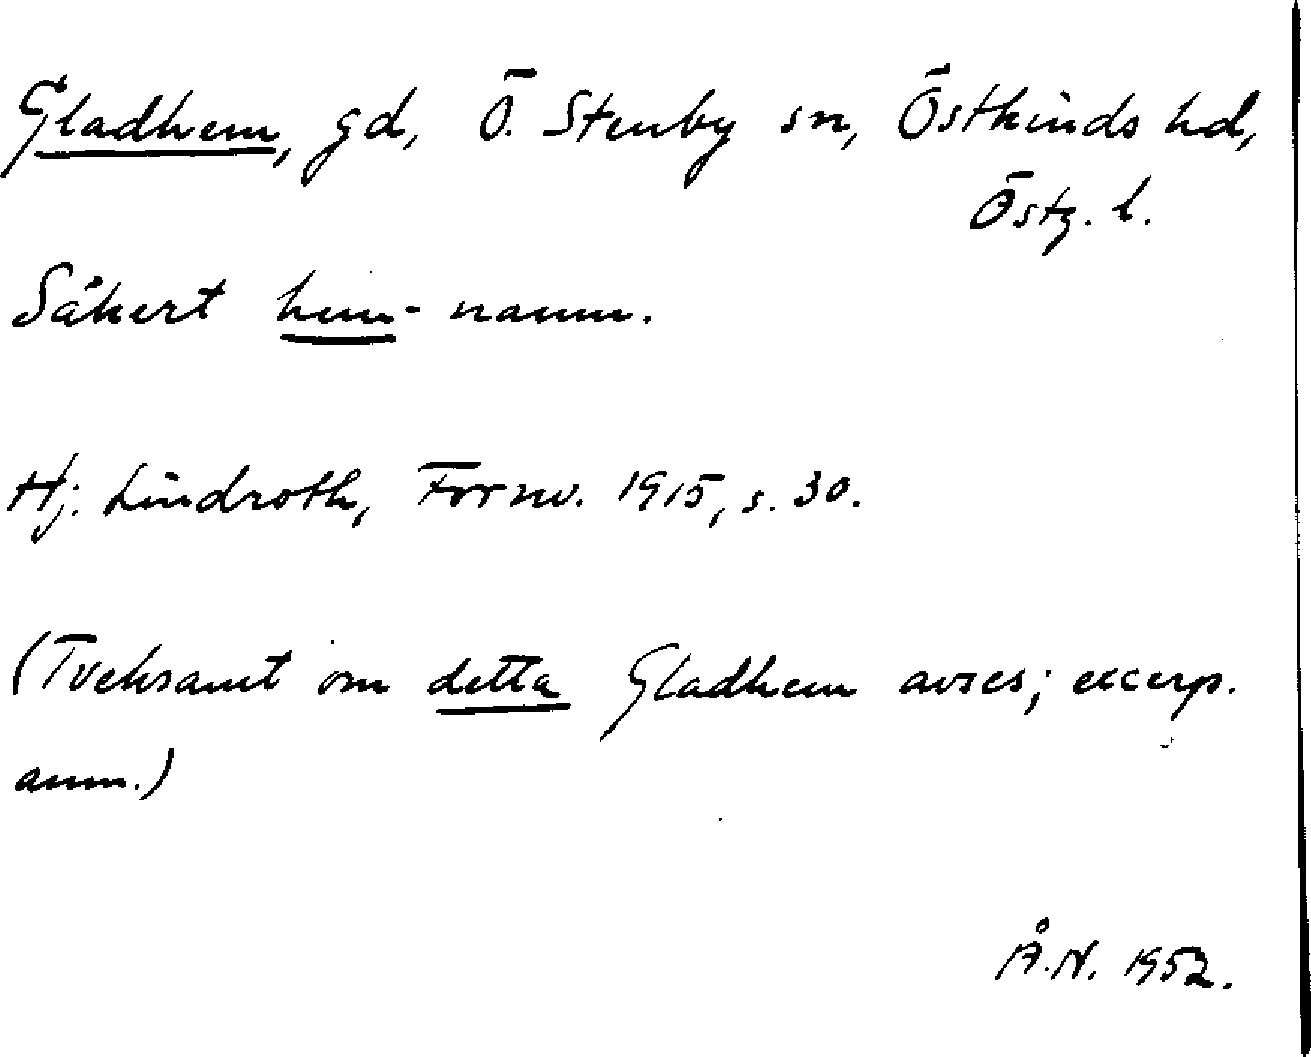 Gladhem, gd, Ö. Stenby sn, Östkinds hd,
Östg. l.
Säkert hem-namn.
Hj. Lindroth, Fornv. 1915, s. 30.
(Tveksamt om detta Gladhem avses; excerp.
anm.)
Å.N. 1952.